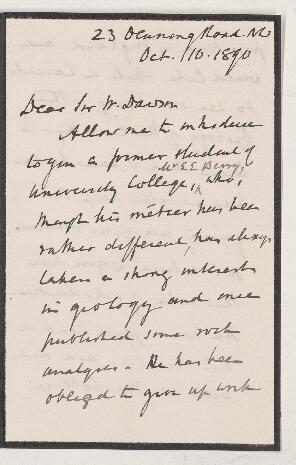 23 Denning Road. N.W
Oct. 10. 1890
Dear Sir W. Dawson
Allow me to introduce
to you a former student of
Mr E E Berry,
University College, who,
though his métier has been
rather different, has always
taken a strong interest
in geology and once
published some rock
analyses. He has been
obliged to give up work